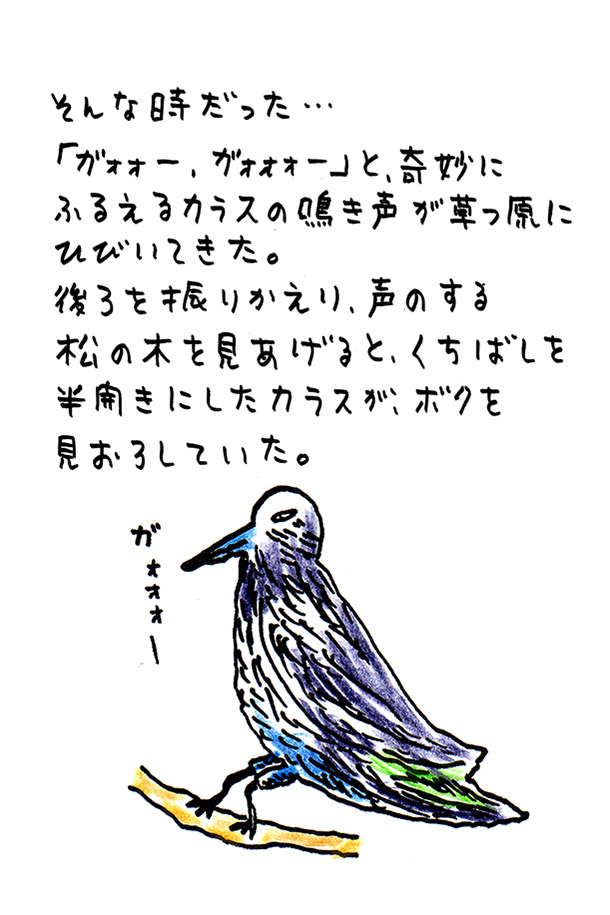 そんな時だった…
「ガォォー、ガォォォー」と、奇妙に
ふるえるカラスの鳴き声が草っ原に
ひびいてきた。
後ろを振りかえり、声のする
松の木を見あげると、くちばしを
半開きにしたカラスが、ボクを
見おろしていた。
ガォォォー